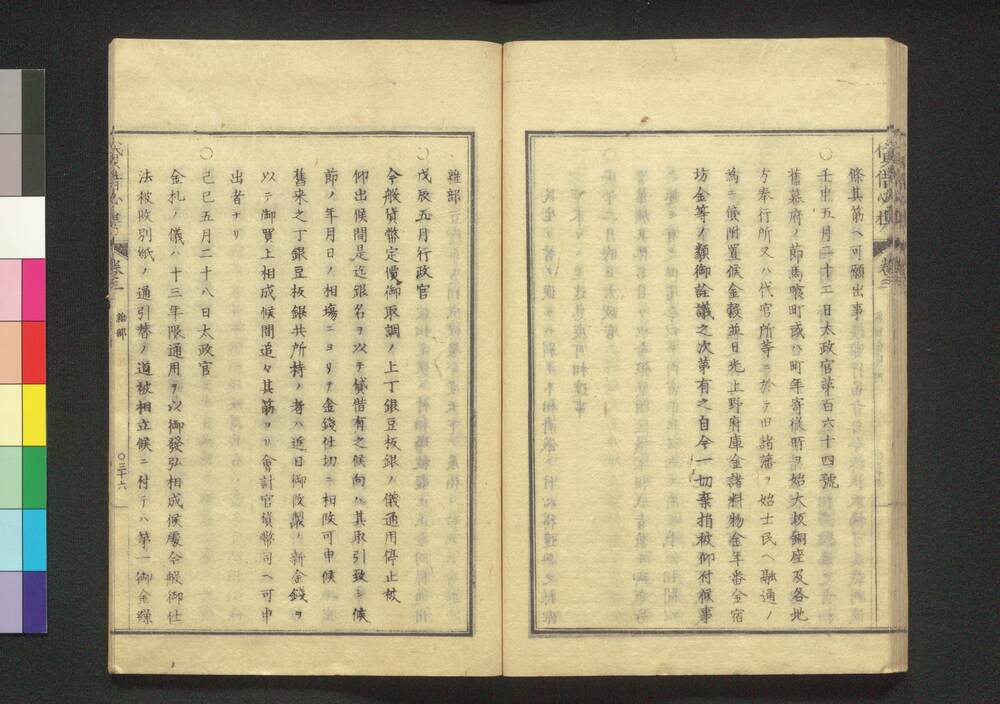 條其筋ヘ可願出事
〇壬申五月二十三日太政官第百六十四號
舊幕府ノ節馬喰町或ハ町年寄樣所ヲ始大坂銅座及各地
方奉行所又ハ代官所等ニ於テ旧諸藩ヲ始士民ヘ融通ノ
爲ニ貸附置候金穀並日光上野府庫金諸料物金年番金宿
坊金等ノ類御詮議之次第有之自今一切棄捐被仰付候事
貸借心得 卷三
雜部
〇戊辰五月行政官
今般貨幣定價御取調ノ上丁銀豆板銀ノ儀通用停止被
仰出候間是迄銀名ヲ以テ貸借有之候向ハ其取引致シ候
節ノ年月日ノ相塲ニヨリテ金錢仕切ニ相改可申候
舊来之丁銀豆板銀共所持ノ者ハ近日御改製ノ新金錢ヲ
以テ御買上相成候間追々其筋ヨリ會計官貨幣司ヘ可申
出者ナリ
〇己巳五月二十八日太政官
金札ノ儀ハ十三年限通用ヲ以御發弘相成候處今般御仕
法被改別紙ノ通引替ノ道被相立候ニ付テハ第一御金繰
卷三
雜部
〇三十六